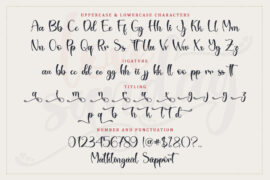 UPPERCASE & LOWERCASE CHARACTERS
Aa Bb Cc Dd Ee Ff Gg Hh Ii Jj Kk Ll Mm
Nn Oo Pp Qq Rr Ss Tt Uu Vv Ww Xx Yy Zz
LIGATURE
aa bb cc dd ee ff gg hh ii jj kk ll oo pp rr ss tt
TITLING
NUMBER AND PUNCTUATION
0123456789 !@#$1280?...
Multilingual Support